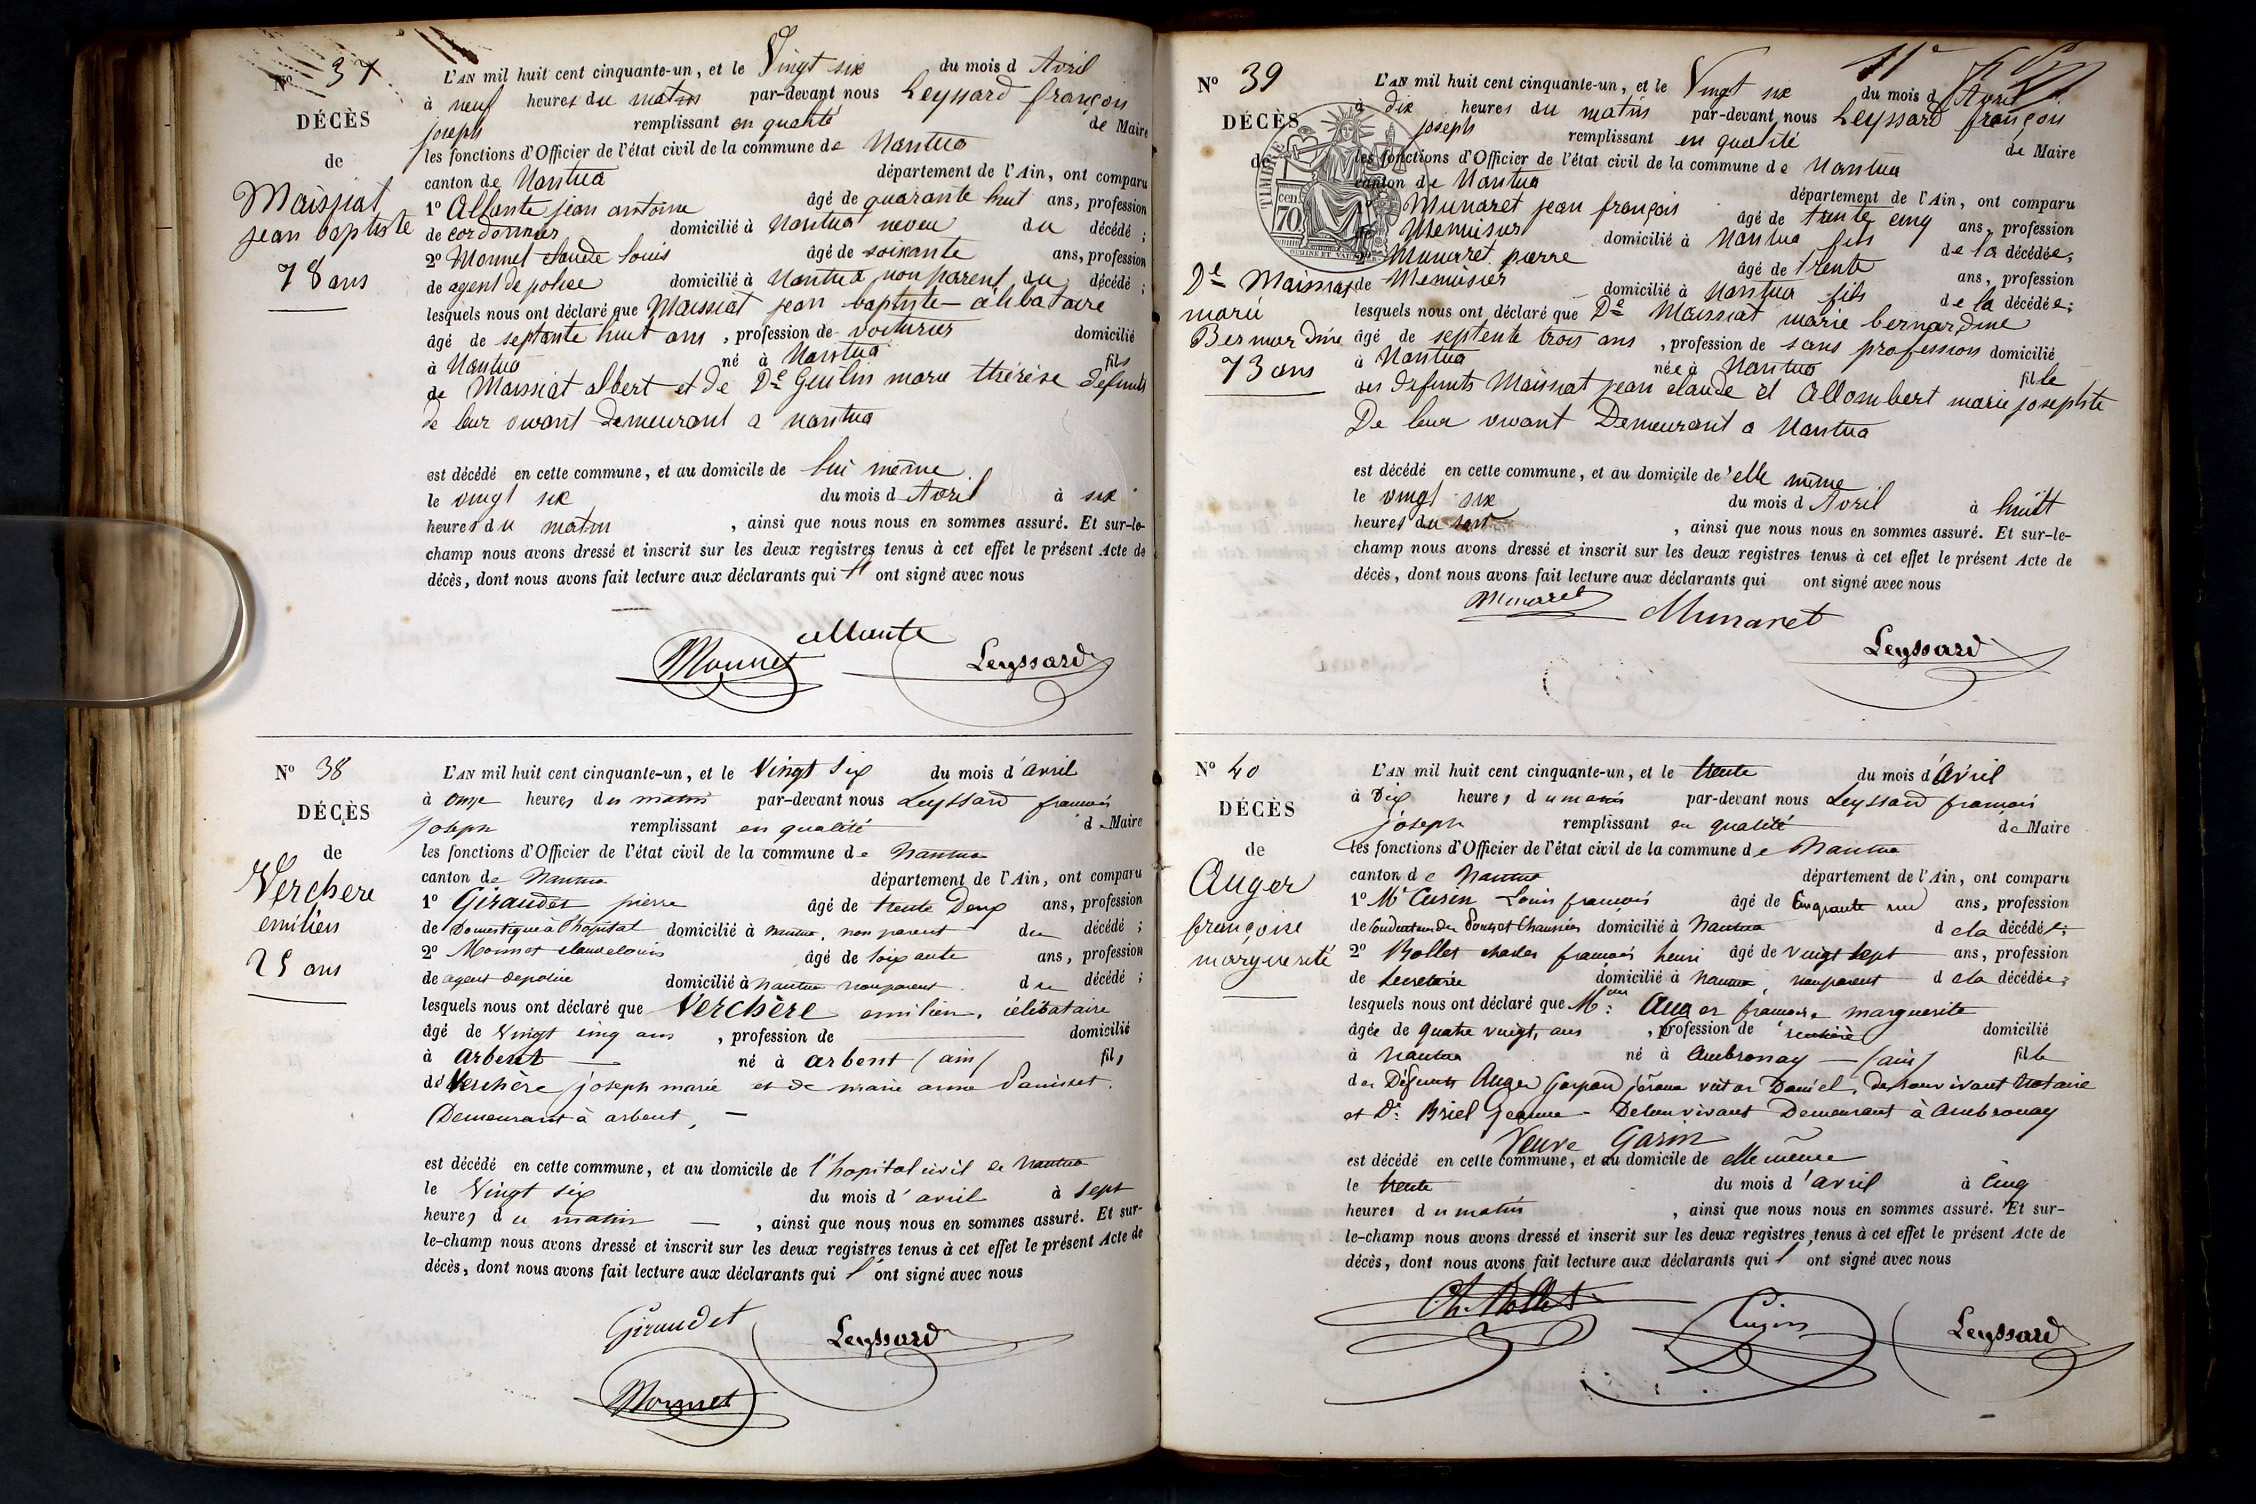 No 37
DÉCÈS
de
Maissiat
jean baptiste
78 ans
L'AN mil huit cent cinquante-un, et le Vingt six du mois d Avril
à neuf heures du matin par-devant nous Leyssard françois
joseph remplissant en qualité de Maire
les fonctions d'Officier de l'état civil de la commune de Nantua
canton de Nantua département de l'Ain, ont comparu
1o Allante jean antoine âgé de quarante huit ans, profession
de cordonnier domicilié à Nantua neveu du décédé;
2o Monnet claude louis âgé de soixante ans, profession
de agent de police domicilié à Nantua non parent du décédé;
lesquels nous ont déclaré que Maissiat jean baptiste célibataire
âgé de septante huit ans, profession de voiturier domicilié
à Nantua né à Nantua fils
de Maissiat albert et de De marie thérèse defunts
de leur vivant demeurant a nantua
est décédé en cette commune, et au domicile de lui même
le vingt six du mois d Avril à six
heures du matin, ainsi que nous nous en sommes assuré. Et sur-le-
champ nous avons dressé et inscrit sur les deux registres tenus à cet effet le présent Acte de
décès, dont nous avons fait lecture aux déclarants qui ont signé avec nous
allante
Monnet Leyssard
No 38
DÉCÈS
de
Verchere
emilien
25 ans
L'AN mil huit cent cinquante-un, et le Vingt Six du mois d'avril
à onze heures du matin par-devant nous Leyssard francois
joseph remplissant en qualité de Maire
les fonctions d'Officier de l'état civil de la commune de Nantua
canton de Nantua département de l'Ain, ont comparu
1o Giraudet pierre âgé de trente Deux ans, profession
de Domestique à l'hopital domicilié à nantua, non parent du décédé;
2o Monnet claude louis âgé de soixante ans, profession
de agent de police domicilié à Nantua non parent du décédé;
lesquels nous ont déclaré que Verchère emilien, célibataire
âgé de Vingt cinq ans, profession de domicilié
à Arbent né à arbent (ain) fils
de Verchère joseph marie et de marie anne
Demeurant à arbent,
est décédé en cette commune, et au domicile de l'hopital civil de Nantua
le Vingt six du mois d'avril à sept
heures du matin, ainsi que nous nous en sommes assuré. Et sur-
le-champ nous avons dressé et inscrit sur les deux registres tenus à cet effet le présent Acte de
décès, dont nous avons fait lecture aux déclarants qui ont signé avec nous
Giraudet Leyssard
Monnet
11e
No 39
DÉCÈS
de
De Maissiat
marie
Bernardine
73 ans
TIMBRE
cen. 70
L'AN mil huit cent cinquante-un, et le Vingt six du mois d Avril
à dix heures du matin par-devant nous Leyssard françois
joseph remplissant en qualité de Maire
les fonctions d'Officier de l'état civil de la commune de Nantua
canton de Nantua département de l'Ain, ont comparu
Munaret jean françois âgé de trente cinq ans, profession
de Menuisier domicilié à Nantua fils de la décédée;
2o Munaret pierre âgé de trente ans, profession
de Menuisier domicilié à Nantua fils de la décédée;
lesquels nous ont déclaré que De Maissiat marie bernardine
âgé de septente trois ans, profession de sans profession domicilié
à Nantua née à Nantua fille
des defunts Maissiat jean claude et Allombert marie josephte
De leur vivant Demeurant a Nantua
est décédé en cette commune, et au domicile de elle même
le vingt six du mois d Avril à huit
heures du, ainsi que nous nous en sommes assuré. Et sur-le-
champ nous avons dressé et inscrit sur les deux registres tenus à cet effet le présent Acte de
décès, dont nous avons fait lecture aux déclarants qui ont signé avec nous
Munaret Munaret
Leyssard
No 40
DÉCÈS
de
Auger
françoise
marguerite
L'AN mil huit cent cinquante-un, et le trente du mois d'Avril
à Dix heures du matin par-devant nous Leyssard francois
joseph remplissant en qualité de Maire
les fonctions d'Officier de l'état civil de la commune de Nantua
canton de Nantua département de l'Ain, ont comparu
1o Mr Cusin Louis francois âgé de Cinquante ans, profession
de Conducteur des Ponts et Chaussées domicilié à Nantua de la décédée;
2o Rollet charles francois henri âgé de vingt sept ans, profession
de Secretaire domicilié à Nantua, non parent de la décédée;
lesquels nous ont déclaré que Auger francoise marguerite
âgée de quatre vingt, ans, profession de rentière domicilié
à Nantua né à Ambronay (ain) fille
des Défunts Auger jérome victor Daniel, de son vivant Notaire
et De Briel Jeanne De leur vivant Demeurant à Ambronay
Veuve Garin
est décédé en cette commune, et au domicile de elle même
le trente du mois d'avril à Cinq
heures du matin, ainsi que nous nous en sommes assuré. Et sur-
le-champ nous avons dressé et inscrit sur les deux registres tenus à cet effet le présent Acte de
décès, dont nous avons fait lecture aux déclarants qui ont signé avec nous
Ch. Rollet Cusin Leyssard